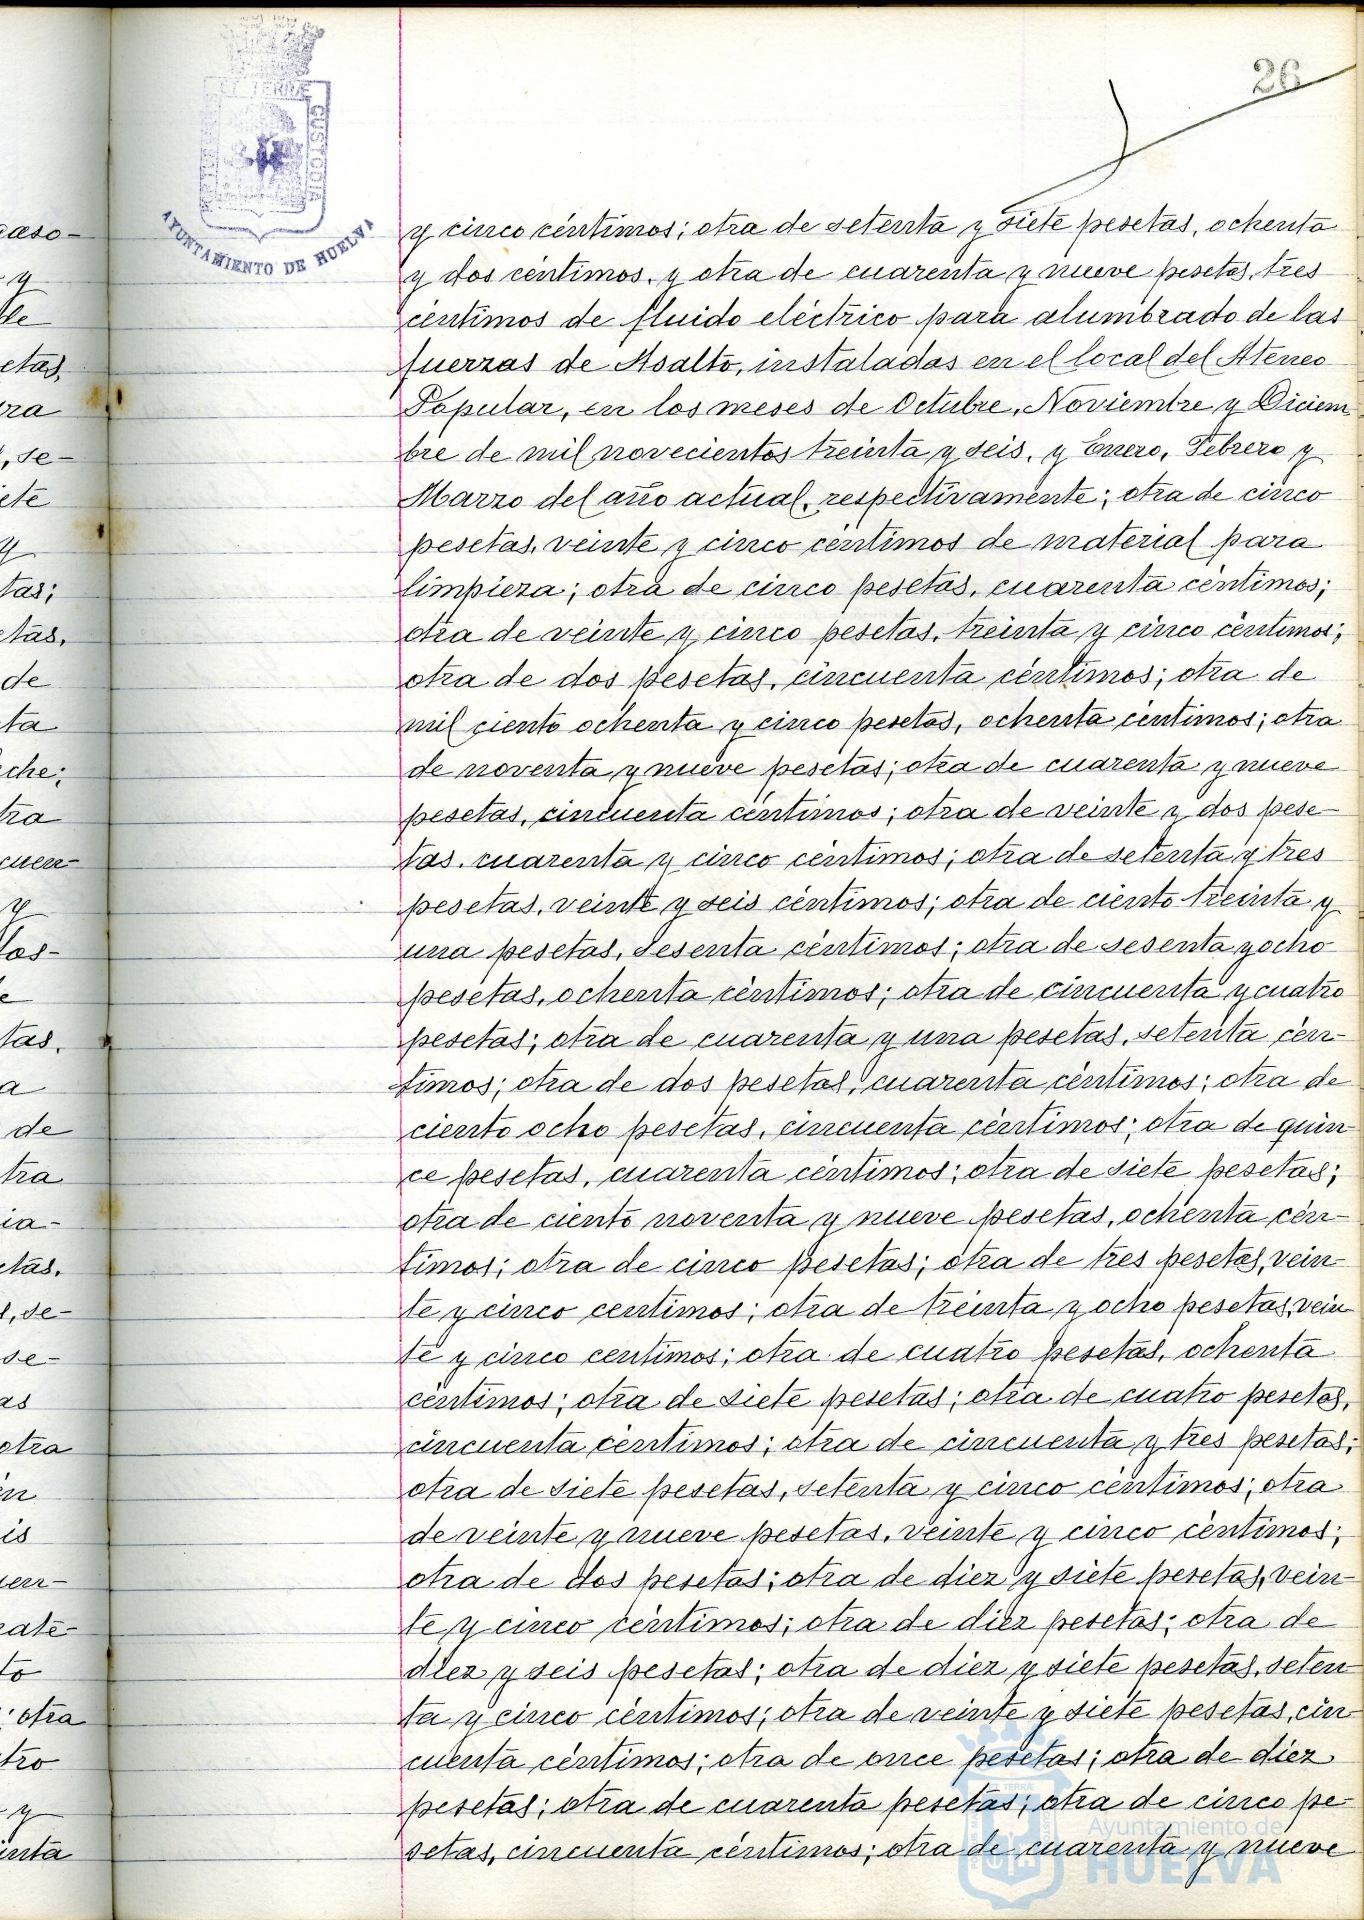 26
ET TERRÆ
CUSTODIA
AYUNTAMIENTO DE HUELVA
y cinco céntimos; otra de setenta y siete pesetas, ochenta
y dos céntimos, y otra de cuarenta y nueve pesetas, tres
céntimos de fluido eléctrico para alumbrado de las
fuerzas de Asalto, instaladas en el local del Ateneo
Popular, en los meses de Octubre, Noviembre y Diciem
bre de mil novecientos treinta y seis, y Enero, Febrero y
Marzo del año actual, respectivamente; otra de cinco
pesetas, veinte y cinco céntimos de material para
limpieza; otra de cinco pesetas, cuarenta céntimos;
otra de veinte y cinco pesetas, treinta y cinco céntimos;
otra de dos pesetas, cincuenta céntimos; otra de
mil ciento ochenta y cinco pesetas, ochenta céntimos; otra
de noventa y nueve pesetas; otra de cuarenta y nueve
pesetas, cincuenta céntimos; otra de veinte y dos pese-
tas, cuarenta y cinco céntimos; otra de setenta y tres
pesetas, veinte y seis céntimos; otra de ciento treinta y
una pesetas, sesenta céntimos; otra de sesenta y ocho
pesetas, ochenta céntimos; otra de cincuenta y cuatro
pesetas; otra de cuarenta y una pesetas, setenta cén-
timos; otra de dos pesetas, cuarenta céntimos; otra de
ciento ocho pesetas, cincuenta céntimos; otra de quin
ce pesetas, cuarenta céntimos; otra de siete pesetas;
otra de ciento noventa y nueve pesetas, ochenta cén-
timos; otra de cinco pesetas; otra de tres pesetas, vein-
te y cinco centimos; otra de treinta y ocho pesetas, vein
te y cinco centimos; otra de cuatro pesetas, ochenta
céntimos; otra de siete pesetas; otra de cuatro pesetas,
cincuenta céntimos; otra de cincuenta y tres pesetas;
otra de siete pesetas, setenta y cinco céntimos; otra
de veinte y nueve pesetas, veinte y cinco céntimos;
otra de dos pesetas; otra de diez y siete pesetas, vein-
te y cinco céntimos; otra de diez pesetas; otra de
diez y seis pesetas; otra de diez y siete pesetas, seten
ta y cinco céntimos; otra de veinte y siete pesetas, cin
cuenta céntimos; otra de once pesetas; otra de diez
pesetas; otra de cuarenta pesetas; otra de cinco pe-
setas, cincuenta céntimos; otra de cuarenta y nueve
Ayuntamiento de
HUELVA